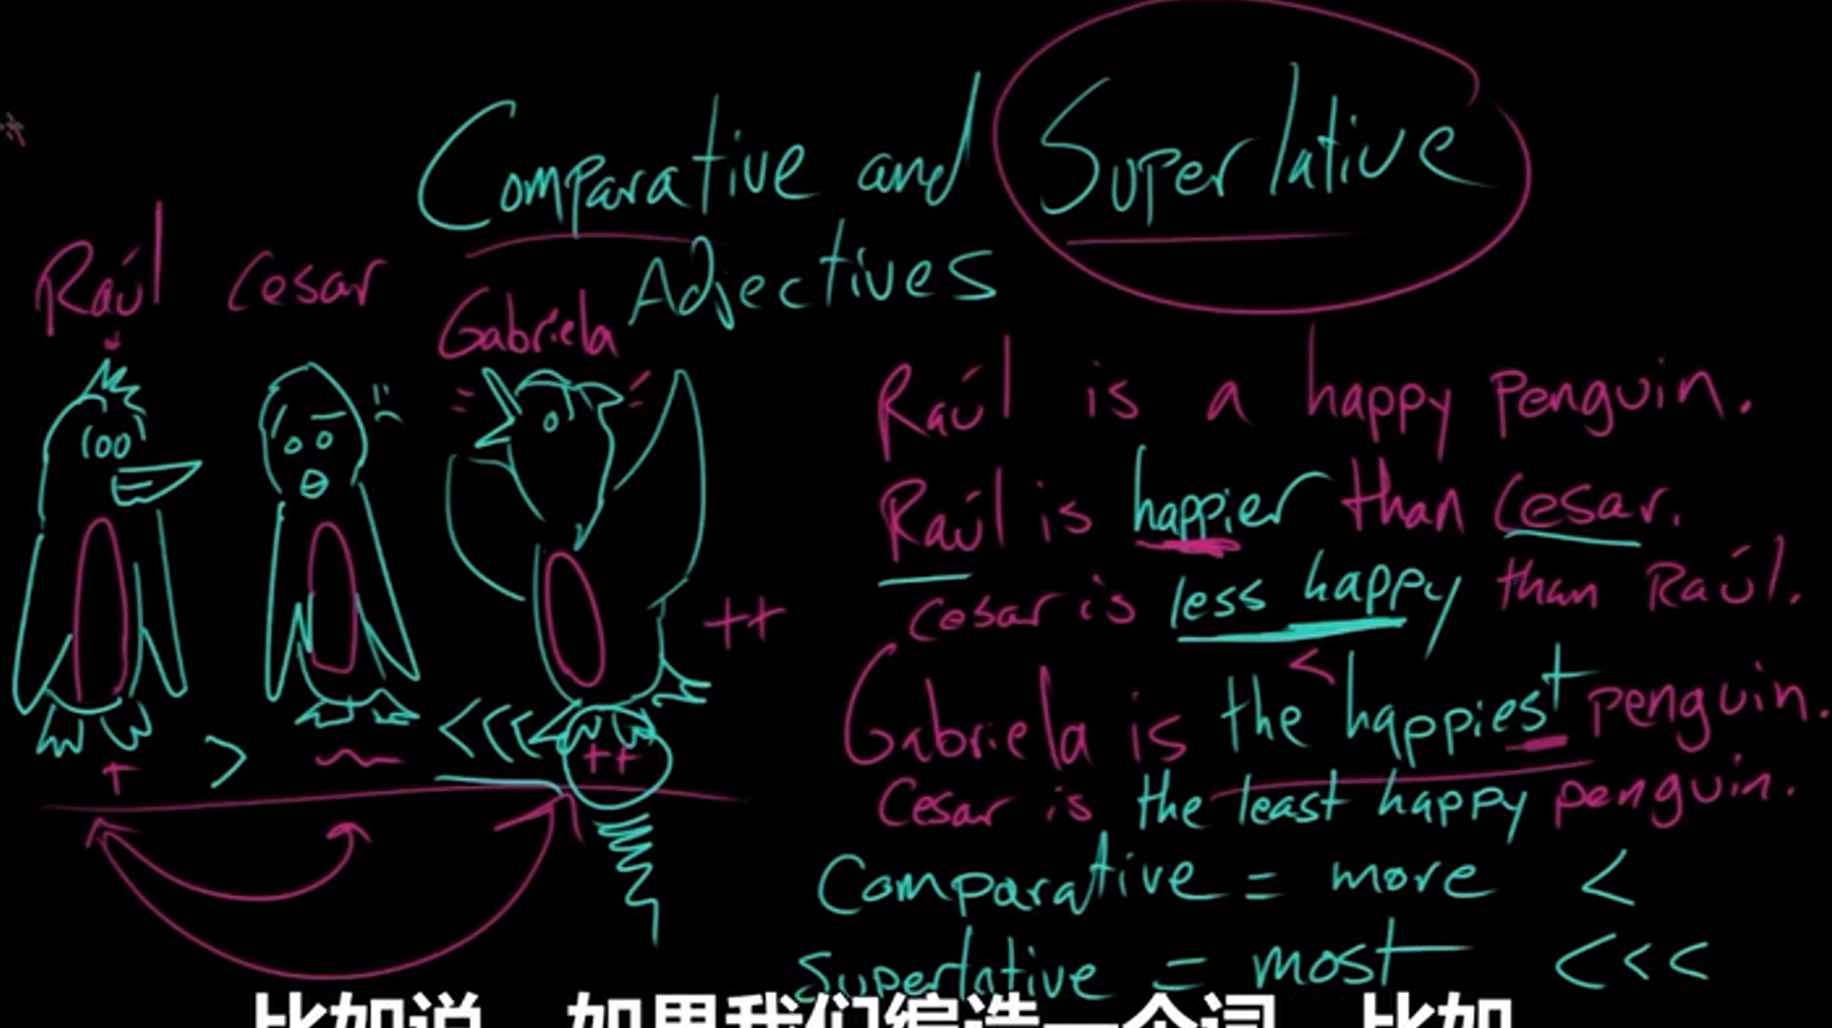 Comparative and Superlative
Adjectives
Raúl Cesar Gabriela
Raúl is a happy penguin.
Raúl is happier than Cesar.
Cesar is less happy than Raúl.
Gabriela is the happiest penguin.
Cesar is the least happy penguin.
++
<<<
+ > ~ ++
Comparative = more <
Superlative = most <<<
比如说 如果我们编造一个词 比如